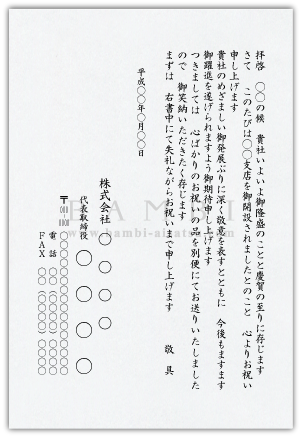 拝啓　〇〇の候　貴社いよいよ御隆盛のことと慶賀の至りに存じます
さて　このたびは〇〇支店を御開設されましたとのこと　心よりお祝い
申し上げます
貴社のめざましい御発展ぶりに深く敬意を表すとともに　今後もますます
御躍進を遂げられますよう御期待申し上げます
つきましては　心ばかりのお祝いの品を別便にてお送りいたしました
ので　御笑納いただきたく存じます
まずは　右書中にて失礼ながらお祝いまで申し上げます　敬具
平成〇〇年〇月〇〇日
株式会社〇〇〇〇
代表取締役　〇〇〇〇
〒
電話
FAX
HAMBI